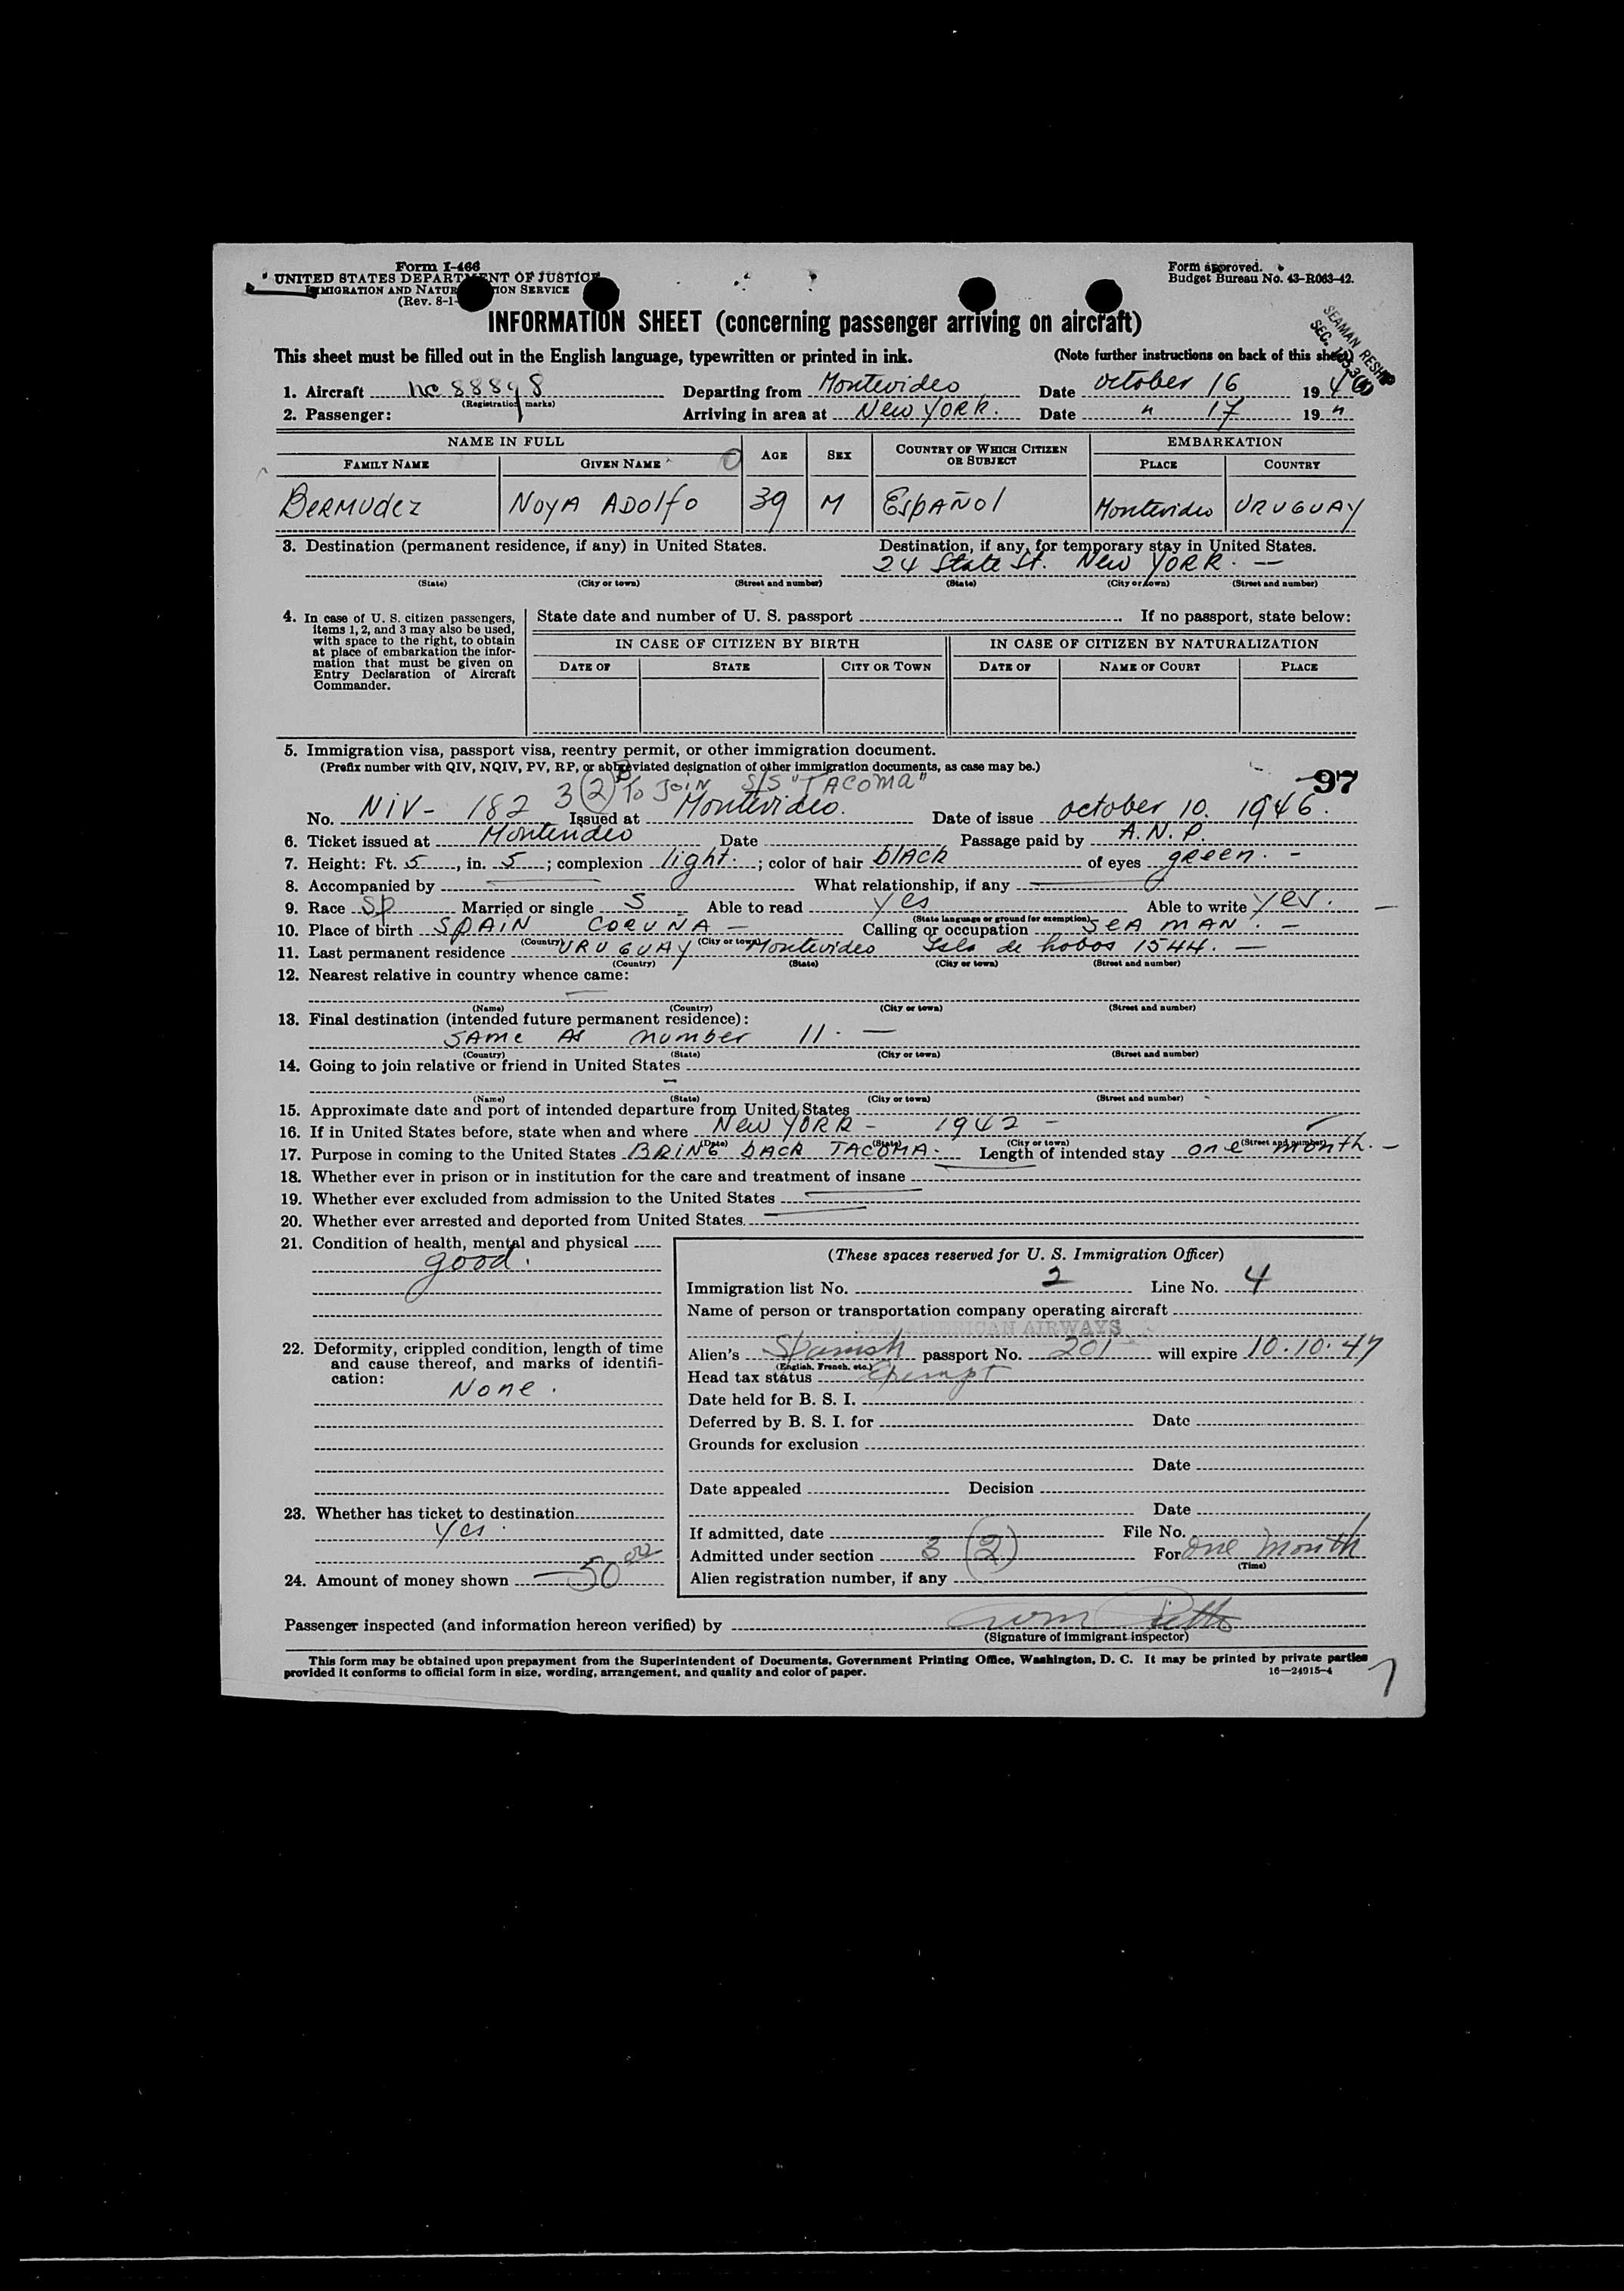 Form I-466
UNITED STATES DEPARTMENT OF JUSTICE
IMMIGRATION AND NATUR TION SERVICE
(Rev. 8-1-
Form approved.
Budget Bureau No. 43-R063-42.
SEAMAN RESHIP
SEC.
INFORMATION SHEET (concerning passenger arriving on aircraft)
This sheet must be filled out in the English language, typewritten or printed in ink. (Note further instructions on back of this sheet)
1. Aircraft nc 88898 Departing from Montevideo Date october 16 194
(Registration marks)
2. Passenger: Arriving in area at New YORK. Date " 17 19 "
NAME IN FULL AGE SEX COUNTRY OF WHICH CITIZEN OR SUBJECT EMBARKATION
FAMILY NAME GIVEN NAME PLACE COUNTRY
BERMUdez NOYA ADOlfo 39 M ESpAÑOl Montevideo URUGUAY
3. Destination (permanent residence, if any) in United States. Destination, if any, for temporary stay in United States.
24 State St. New YORK. —
(State) (City or town) (Street and number) (State) (City or town) (Street and number)
4. In case of U. S. citizen passengers, items 1, 2, and 3 may also be used, with space to the right, to obtain at place of embarkation the information that must be given on Entry Declaration of Aircraft Commander.
State date and number of U. S. passport If no passport, state below:
IN CASE OF CITIZEN BY BIRTH IN CASE OF CITIZEN BY NATURALIZATION
DATE OF STATE CITY OR TOWN DATE OF NAME OF COURT PLACE
5. Immigration visa, passport visa, reentry permit, or other immigration document.
(Prefix number with QIV, NQIV, PV, RP, or abbreviated designation of other immigration documents, as case may be.)
97
3 (2) To JOIN S/S "TACOMA"
No. NIV- 182 Issued at Montevideo. Date of issue october 10. 1946.
6. Ticket issued at Montevideo Date Passage paid by A.N.P.
7. Height: Ft. 5, in. 5; complexion light.; color of hair blACK of eyes green. -
8. Accompanied by What relationship, if any
9. Race Sp Married or single S Able to read yes Able to write yes. —
(State language or ground for exemption)
10. Place of birth SPAIN CORUNA — Calling or occupation SEAMAN. -
(Country) (City or town)
11. Last permanent residence URUGUAY Montevideo Isla de lobos 1544. —
(Country) (State) (City or town) (Street and number)
12. Nearest relative in country whence came:
—
(Name) (Country) (City or town) (Street and number)
13. Final destination (intended future permanent residence):
SAMe AS number 11. —
(Country) (State) (City or town) (Street and number)
14. Going to join relative or friend in United States
—
(Name) (State) (City or town) (Street and number)
15. Approximate date and port of intended departure from United States
16. If in United States before, state when and where New YORK - 1942 -
(Date) (State) (City or town) (Street and number)
17. Purpose in coming to the United States BRING bACK TACOMA. Length of intended stay one month. -
18. Whether ever in prison or in institution for the care and treatment of insane
19. Whether ever excluded from admission to the United States
20. Whether ever arrested and deported from United States.
21. Condition of health, mental and physical
good.
22. Deformity, crippled condition, length of time and cause thereof, and marks of identification:
None.
23. Whether has ticket to destination
yes.
24. Amount of money shown 50 00
(These spaces reserved for U. S. Immigration Officer)
Immigration list No. 2 Line No. 4
Name of person or transportation company operating aircraft
AMERICAN AIRWAYS
Alien's Spanish passport No. 201 will expire 10.10.47
(English, French, etc.)
Head tax status Exempt
Date held for B. S. I.
Deferred by B. S. I. for Date
Grounds for exclusion
Date
Date appealed Decision
Date
If admitted, date File No.
Admitted under section 3 (2) For one month
(Time)
Alien registration number, if any
Passenger inspected (and information hereon verified) by
(Signature of immigrant inspector)
This form may be obtained upon prepayment from the Superintendent of Documents, Government Printing Office, Washington, D. C. It may be printed by private parties
provided it conforms to official form in size, wording, arrangement, and quality and color of paper. 16—24915-4